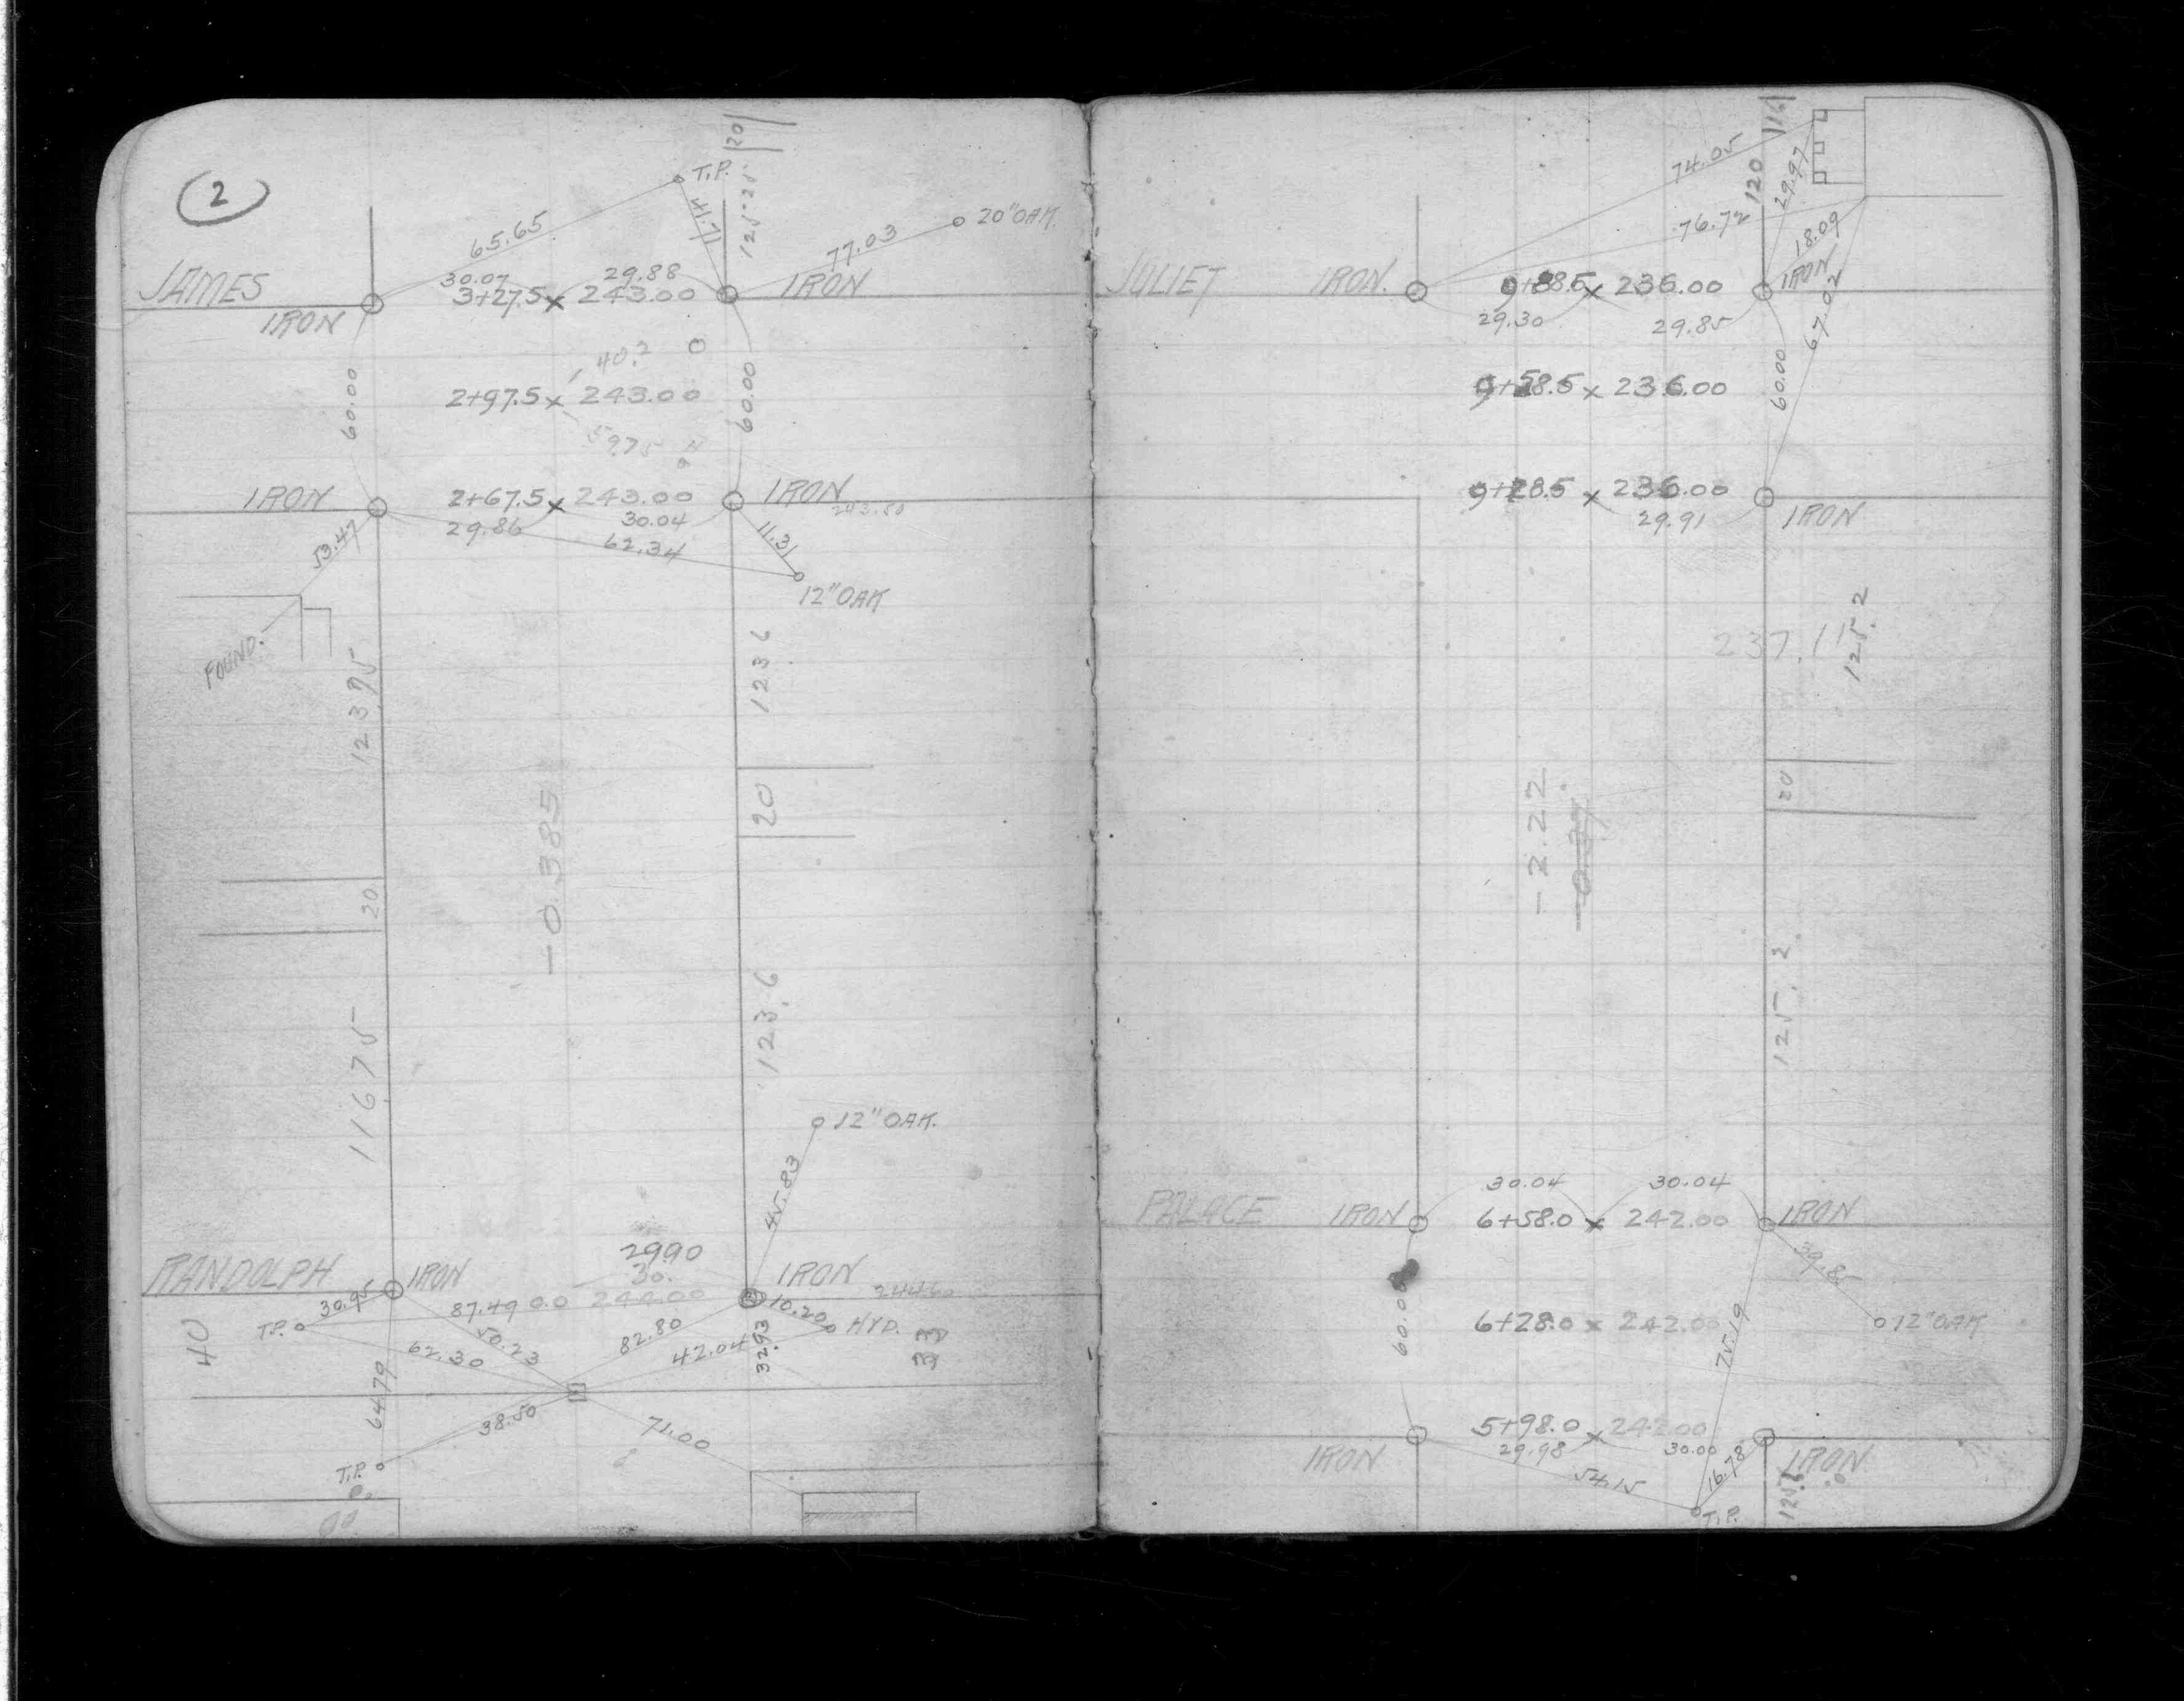 2
120
T.P.
125.25
65.65
11.14
77.03
20" OAK.
JAMES
30.07
29.88
IRON
3+27.5 x 243.00
IRON
60.00
40.2
60.00
2+97.5 x 243.00
59.75
IRON
2+67.5 x 243.00
IRON
243.80
29.86
30.04
62.34
11.31
53.47
12" OAK
FOUND.
123.95
123.6
20
-0.385
20
116.75
123.6
12" OAK.
45.83
29.90
30.
RANDOLPH
IRON
IRON
30.95
87.49
0.0
244.00
10.20
T.P.
HYD.
40
62.30
50.23
82.80
42.04
32.93
64.79
38.50
71.00
T.P.
116
74.05
120
29.97
76.72
18.09
JULIET
IRON.
9+88.5 x 236.00
IRON
29.30
29.85
67.02
9+58.5 x 236.00
60.00
9+28.5 x 236.00
29.91
IRON
237.11
125.2
-2.22
-0.37
20
125.2
30.04
30.04
PALACE
IRON
6+58.0 x 242.00
IRON
39.85
60.08
6+28.0 x 242.00
75.19
12" OAK
5+98.0 x 242.00
IRON
29.98
30.00
IRON
54.15
16.78
T.P.